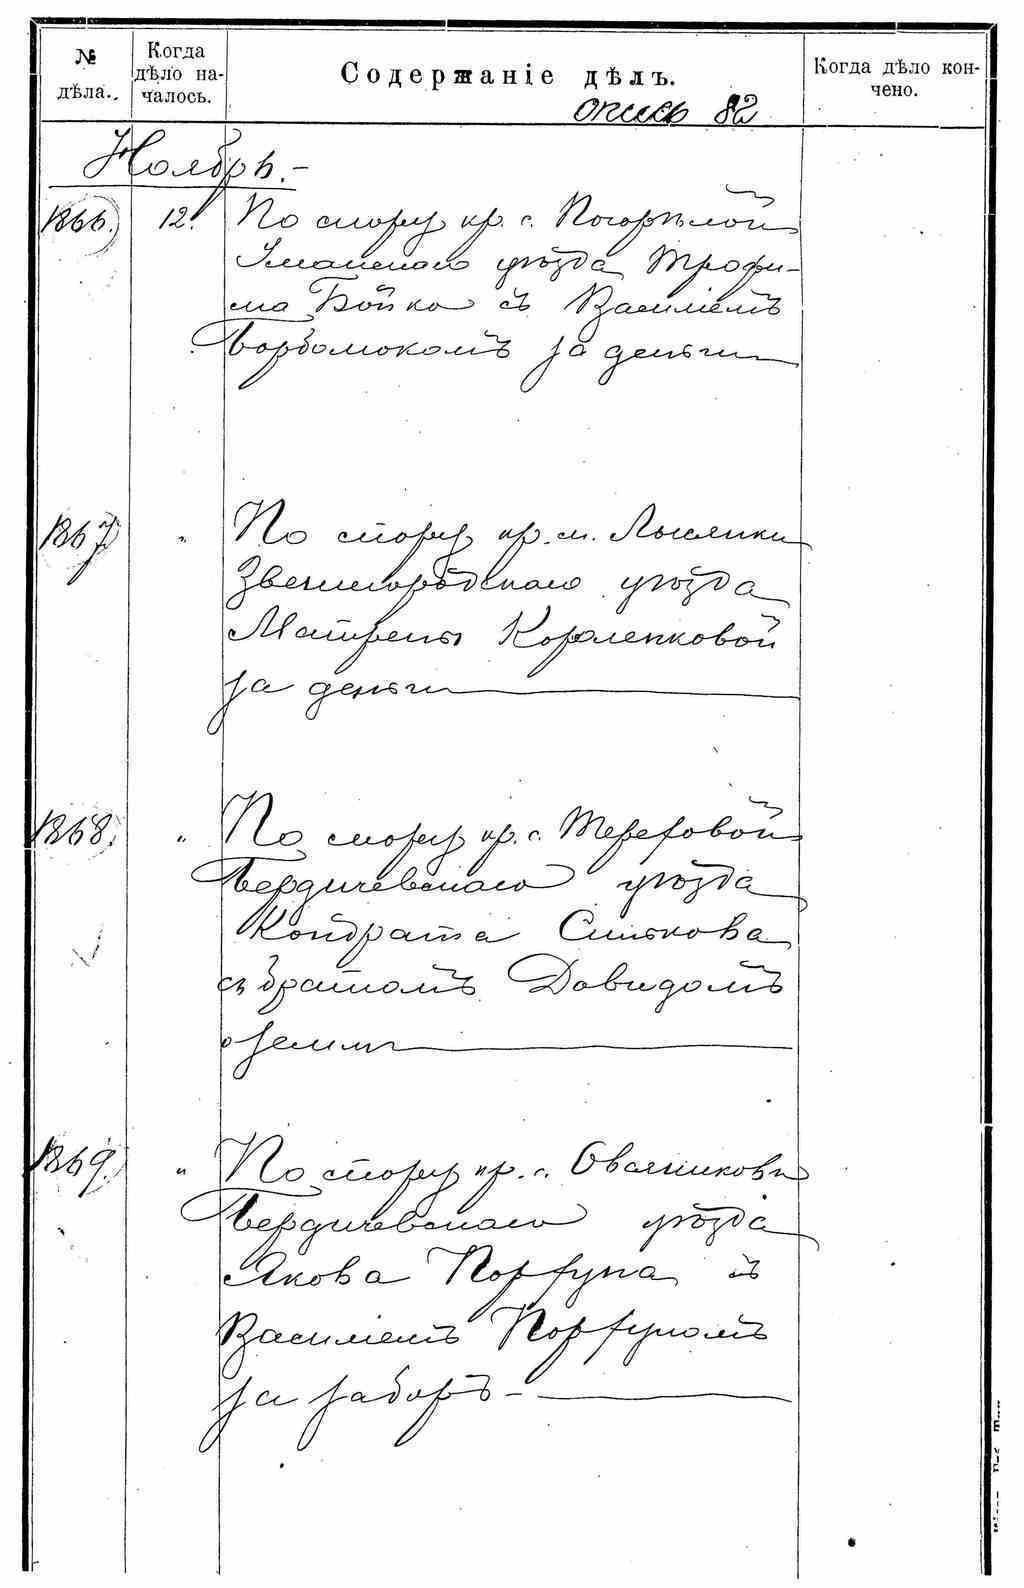 № дѣла.
Когда дѣло началось.
Содержаніе дѣлъ.
Когда дѣло кончено.
опись 82
Ноябрь.-
1866. 12. По спору кр. с. Погорѣлой
Уманскаго уѣзда Трофи-
ма Бойко съ Василіемъ
за деньги
1867 " По спору кр. м. Лысянки
Звенигородскаго уѣзда
Матрены Короленковой
за деньги
1868. " По спору кр. с. Тереховой
Бердичевскаго уѣзда
Кондрата Силькова
съ братомъ Давидомъ
о земли
1869. " По спору кр. с. Овсяниковъ
Бердичевскаго уѣзда
Якова Порхуна съ
Василіемъ Порхуномъ
за заборъ -